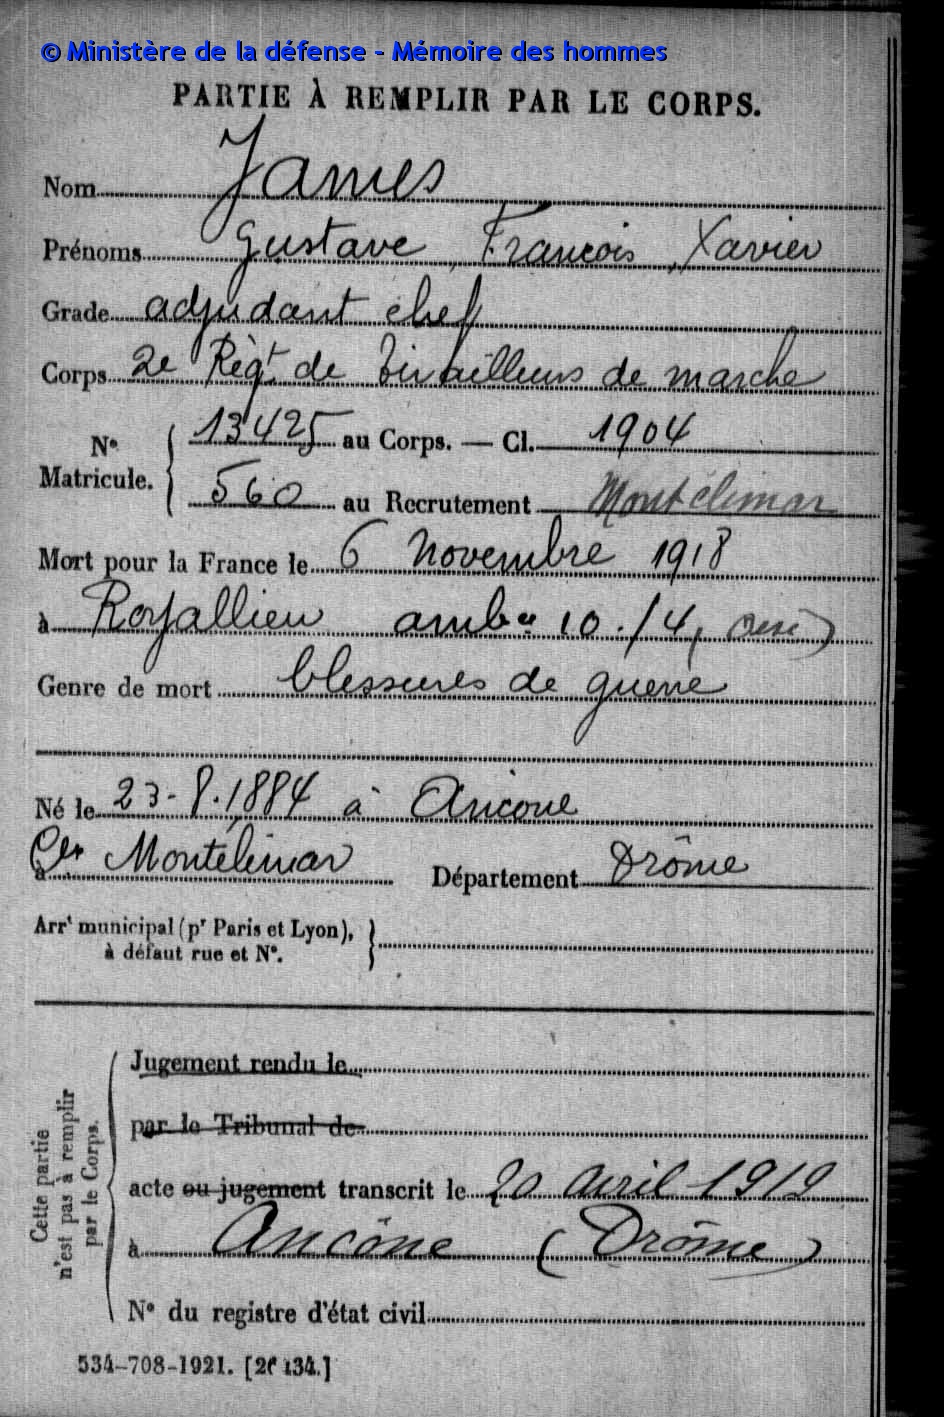 © Ministère de la défense - Mémoire des hommes
PARTIE À REMPLIR PAR LE CORPS.
Nom James
Prénoms Gustave, François, Xavier
Grade adjudant chef
Corps 2e Régt de Tirailleurs de marche
N° Matricule. { 13425 au Corps. — Cl. 1904
560 au Recrutement Montélimar
Mort pour la France le 6 Novembre 1918
à Royallieu ambce 10./4, Oise)
Genre de mort blessures de guerre
Né le 23-8.1884 à Ancone
Con Montélimar Département Drôme
Arrt municipal (pr Paris et Lyon),
à défaut rue et N°.
Cette partie
n'est pas à remplir
par le Corps.
Jugement rendu le
par le Tribunal de
acte ou jugement transcrit le 20 avril 1919
à Ancône (Drôme)
N° du registre d'état civil
534-708-1921. [26434.]